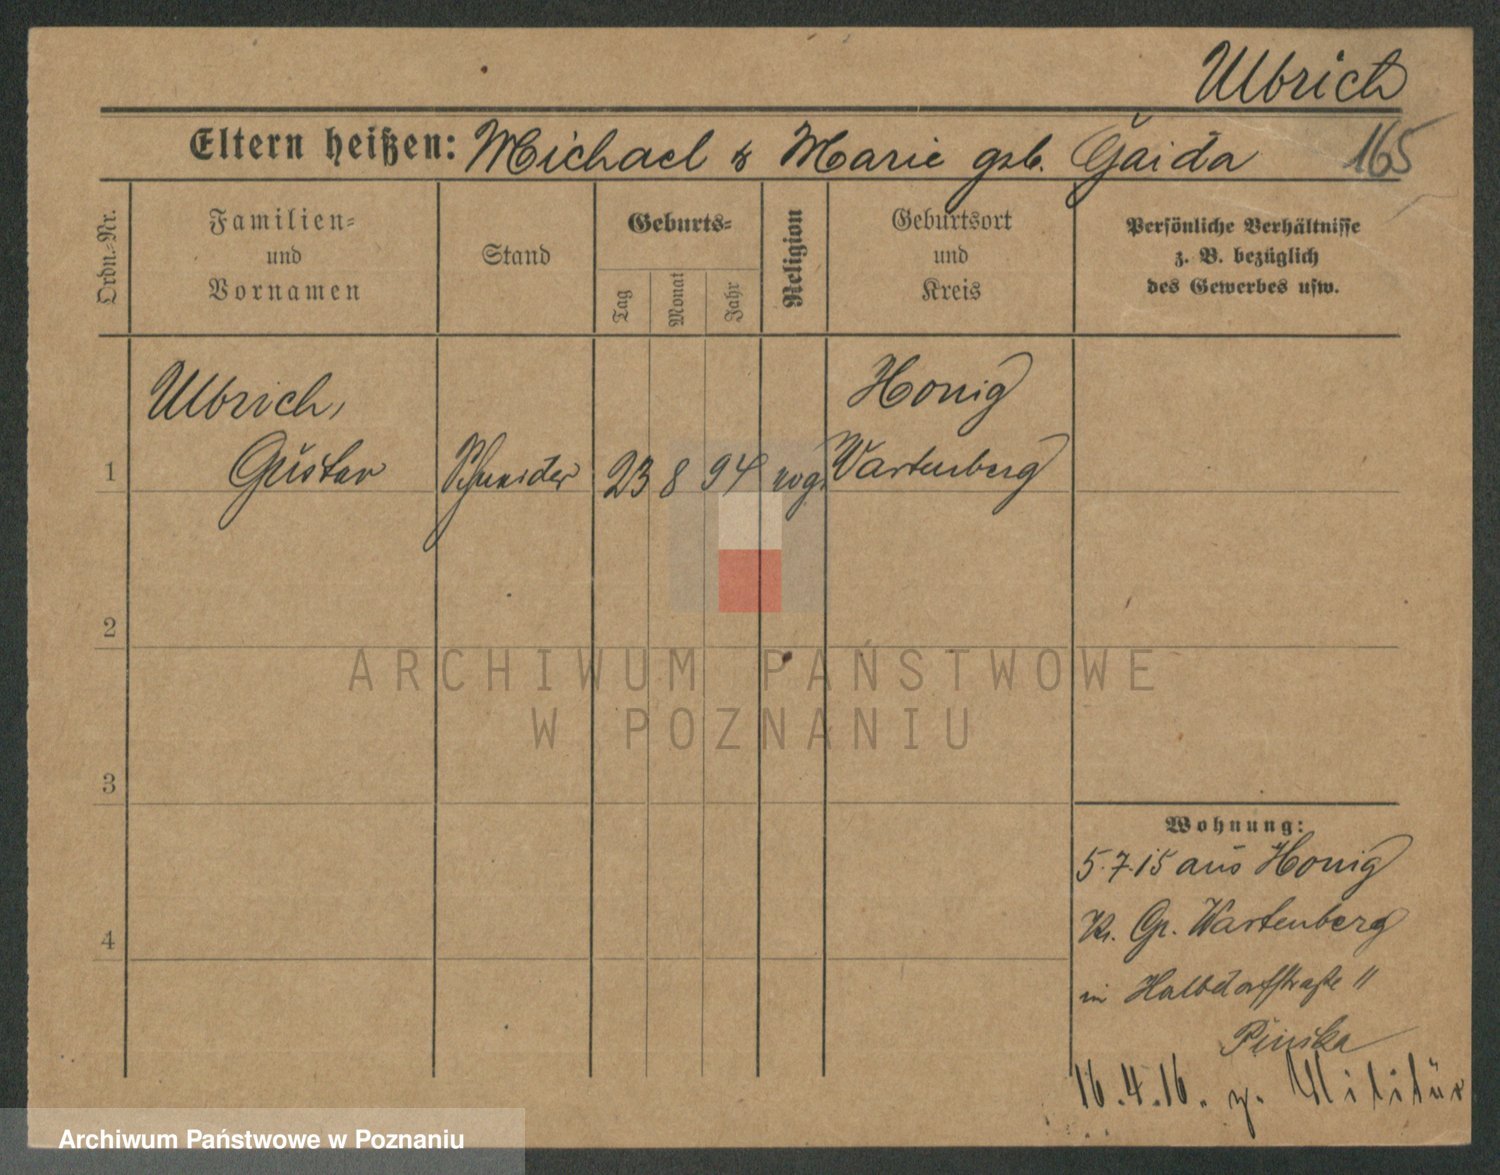 Ulbrich
Eltern heißen: Michael & Marie geb. Gaida
165
Ordn.-Nr.
Familien-
und
Vornamen
Stand
Geburts-
Tag
Monat
Jahr
Religion
Geburtsort
und
Kreis
Persönliche Verhältnisse
z. B. bezüglich
des Gewerbes usw.
Ulbrich,
Gustav
1
Schneider
23 8 94
evg.
Honig
Wartenberg
2
3
4
Wohnung:
5.7.15 aus Honig
Kr. Gr. Wartenberg
in Halbdorfstraße 11
16.4.16. z. Militär
ARCHIWUM PAŃSTWOWE
W POZNANIU
Archiwum Państwowe w Poznaniu